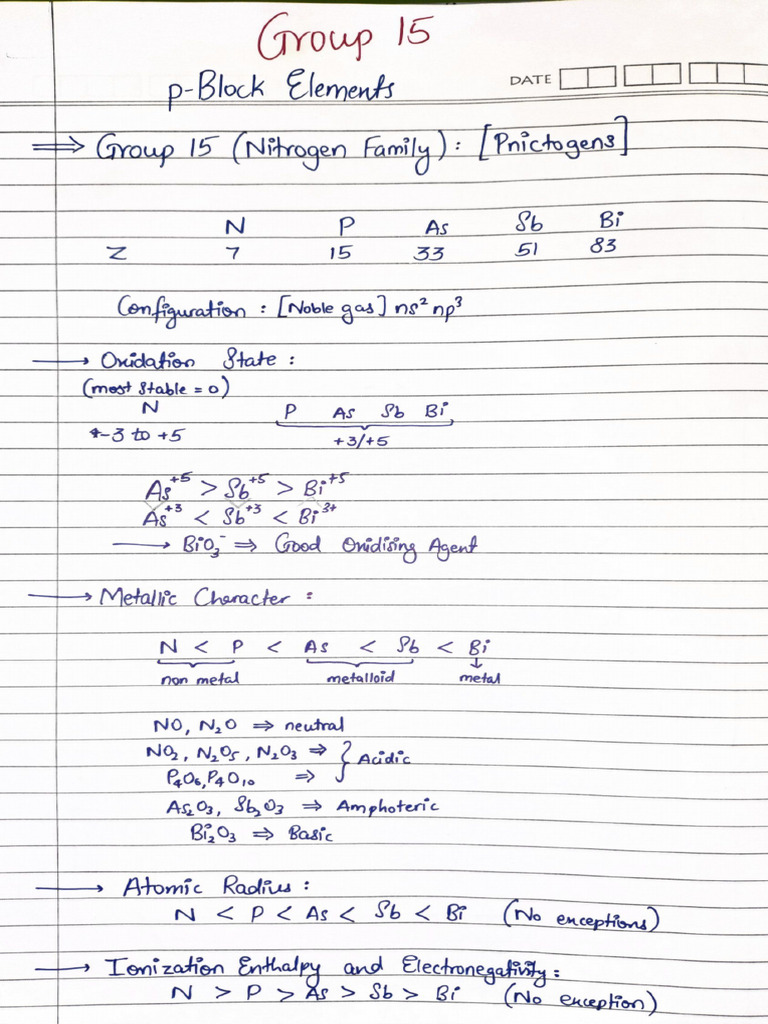 Group 15
p-Block Elements DATE
⇒ Group 15 (Nitrogen Family) : [Pnictogens]
N P As Sb Bi
Z 7 15 33 51 83
Configuration : [Noble gas] ns² np³
→ Oxidation State :
(most stable = 0)
N P As Sb Bi
-3 to +5 +3/+5
As⁺⁵ > Sb⁺⁵ > Bi⁺⁵
As⁺³ < Sb⁺³ < Bi³⁺
→ BiO₃⁻ ⇒ Good Oxidising Agent
→ Metallic Character :
N < P < As < Sb < Bi
non metal metalloid metal
NO, N₂O ⇒ neutral
NO₂, N₂O₅, N₂O₃ ⇒ } Acidic
P₄O₆, P₄O₁₀ ⇒
As₂O₃, Sb₂O₃ ⇒ Amphoteric
Bi₂O₃ ⇒ Basic
→ Atomic Radius :
N < P < As < Sb < Bi (No exceptions)
→ Ionization Enthalpy and Electronegativity :
N > P > As > Sb > Bi (No exception)